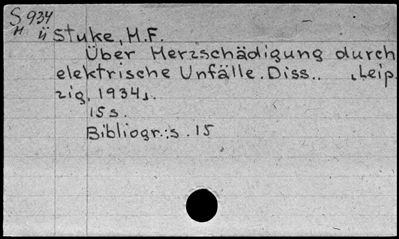 S 934
H ü Stuke, H.F.
Über Herzschädigung durch
elektrische Unfälle. Diss.. ,Leip
zig, 1934,.
15 s.
Bibliogr.: s. 15